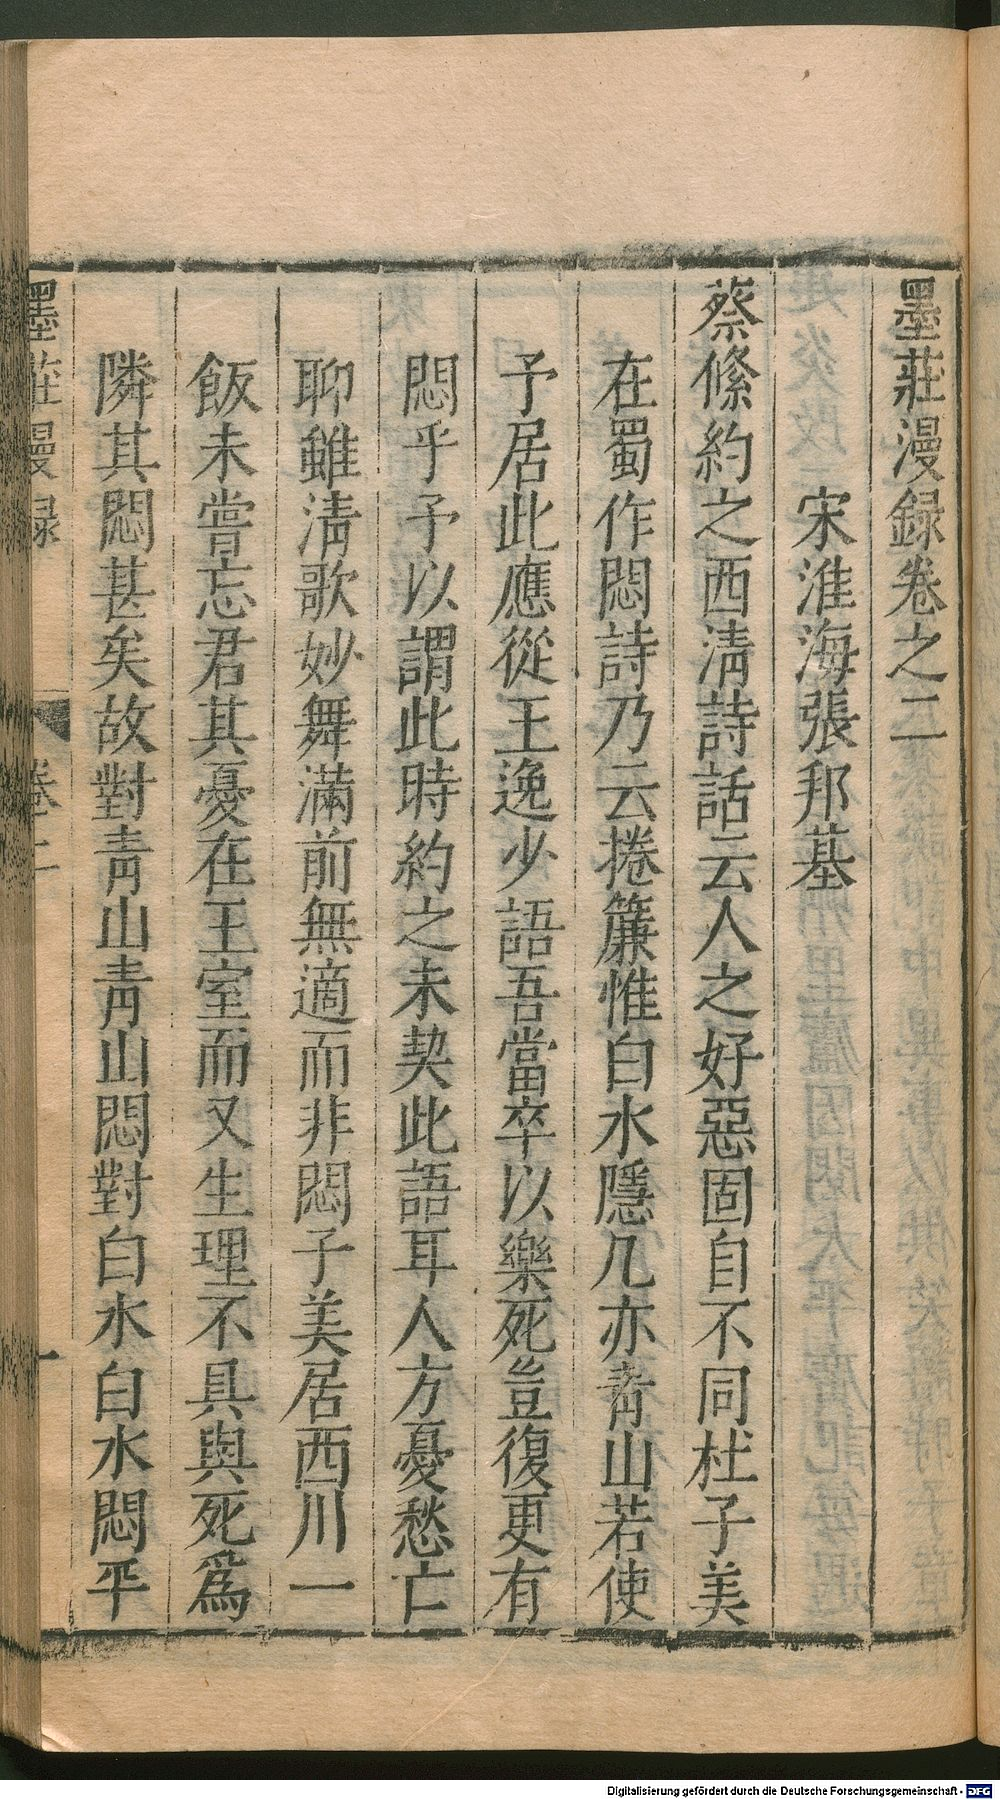 墨莊漫録卷之二
宋淮海張邦基
蔡絛約之西清詩話云人之好惡固自不同杜子美
在蜀作悶詩乃云捲簾惟白水隱几亦青山若使
予居此應從王逸少語吾當卒以樂死豈復更有
悶乎予以謂此時約之未契此語耳人方憂愁亡
聊雖清歌妙舞滿前無適而非悶子美居西川一
飯未嘗忘君其憂在王室而又生理不具與死爲
隣其悶甚矣故對青山青山悶對白水白水悶平
墨莊漫録 卷二 一
Digitalisierung gefördert durch die Deutsche Forschungsgemeinschaft - DFG